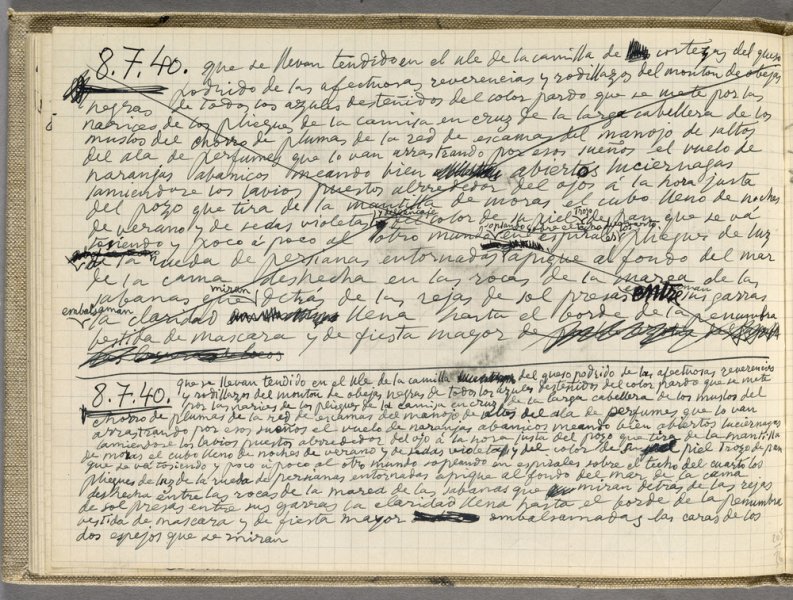 8.7.40. que se llevan tendido en el ule de la camilla de cortezas del queso
podrido de las afectuosas reverencias y rodillazos del monton de obejas
negras de todos los azules desteñidos del color pardo que se mete por las
narices de los pliegues de la camisa en cruz de la larga cabellera de los
muslos del chorro de plumas de la red de escamas del manojo de saltos
del ala de perfumes que lo van arrastrando por esos sueños el vuelo de
naranjas abanicos meando bien abiertos luciernagas
lamiendose los labios puestos alrrededor del ojo á la hora justa
del pozo que tira de la mantilla de moras el cubo lleno de noches
de verano y de sedas violeta y del color de la piel Trozo de pan que se va
tosiendo y poco á poco al otro mundo soplando en espirales sobre el techo del cuarto los pliegues de luz
de la rueda de persianas entornadas apique al fondo del mar
de la cama deshecha en las rocas de la marea de las
sabanas que miran detrás de las rejas de sol presas entre sus garras
embalsaman la claridad llena hasta el borde de la penumbra
vestida de mascara y de fiesta mayor de
8.7.40. que se llevan tendido en el ule de la camilla del queso podrido de las afectuosas reverencias
y rodillazos del monton de obejas negras de todos los azules desteñidos del color pardo que se mete
por las narices de los pliegues de la camisa en cruz de la larga cabellera de los muslos del
chorro de plumas de la red de escamas del manojo de saltos del ala de perfumes que lo van
arrastrando por esos sueños el vuelo de naranjas abanicos meando bien abiertos luciernagas
lamiendose los labios puestos alrrededor del ojo á la hora justa del pozo que tira de la mantilla
de moras el cubo lleno de noches de verano y de sedas violetas y del color de su piel Trozo de pan
que se va tosiendo y poco á poco al otro mundo soplando en espirales sobre el techo del cuarto los
pliegues de luz de la rueda de persianas entornadas apique al fondo del mar de la cama
deshecha entre las rocas de la marea de las sabanas que miran detras de las rejas
de sol presas entre sus garras la claridad llena hasta el borde de la penumbra
vestida de mascara y de fiesta mayor embalsamadas las caras de los
dos espejos que se miran